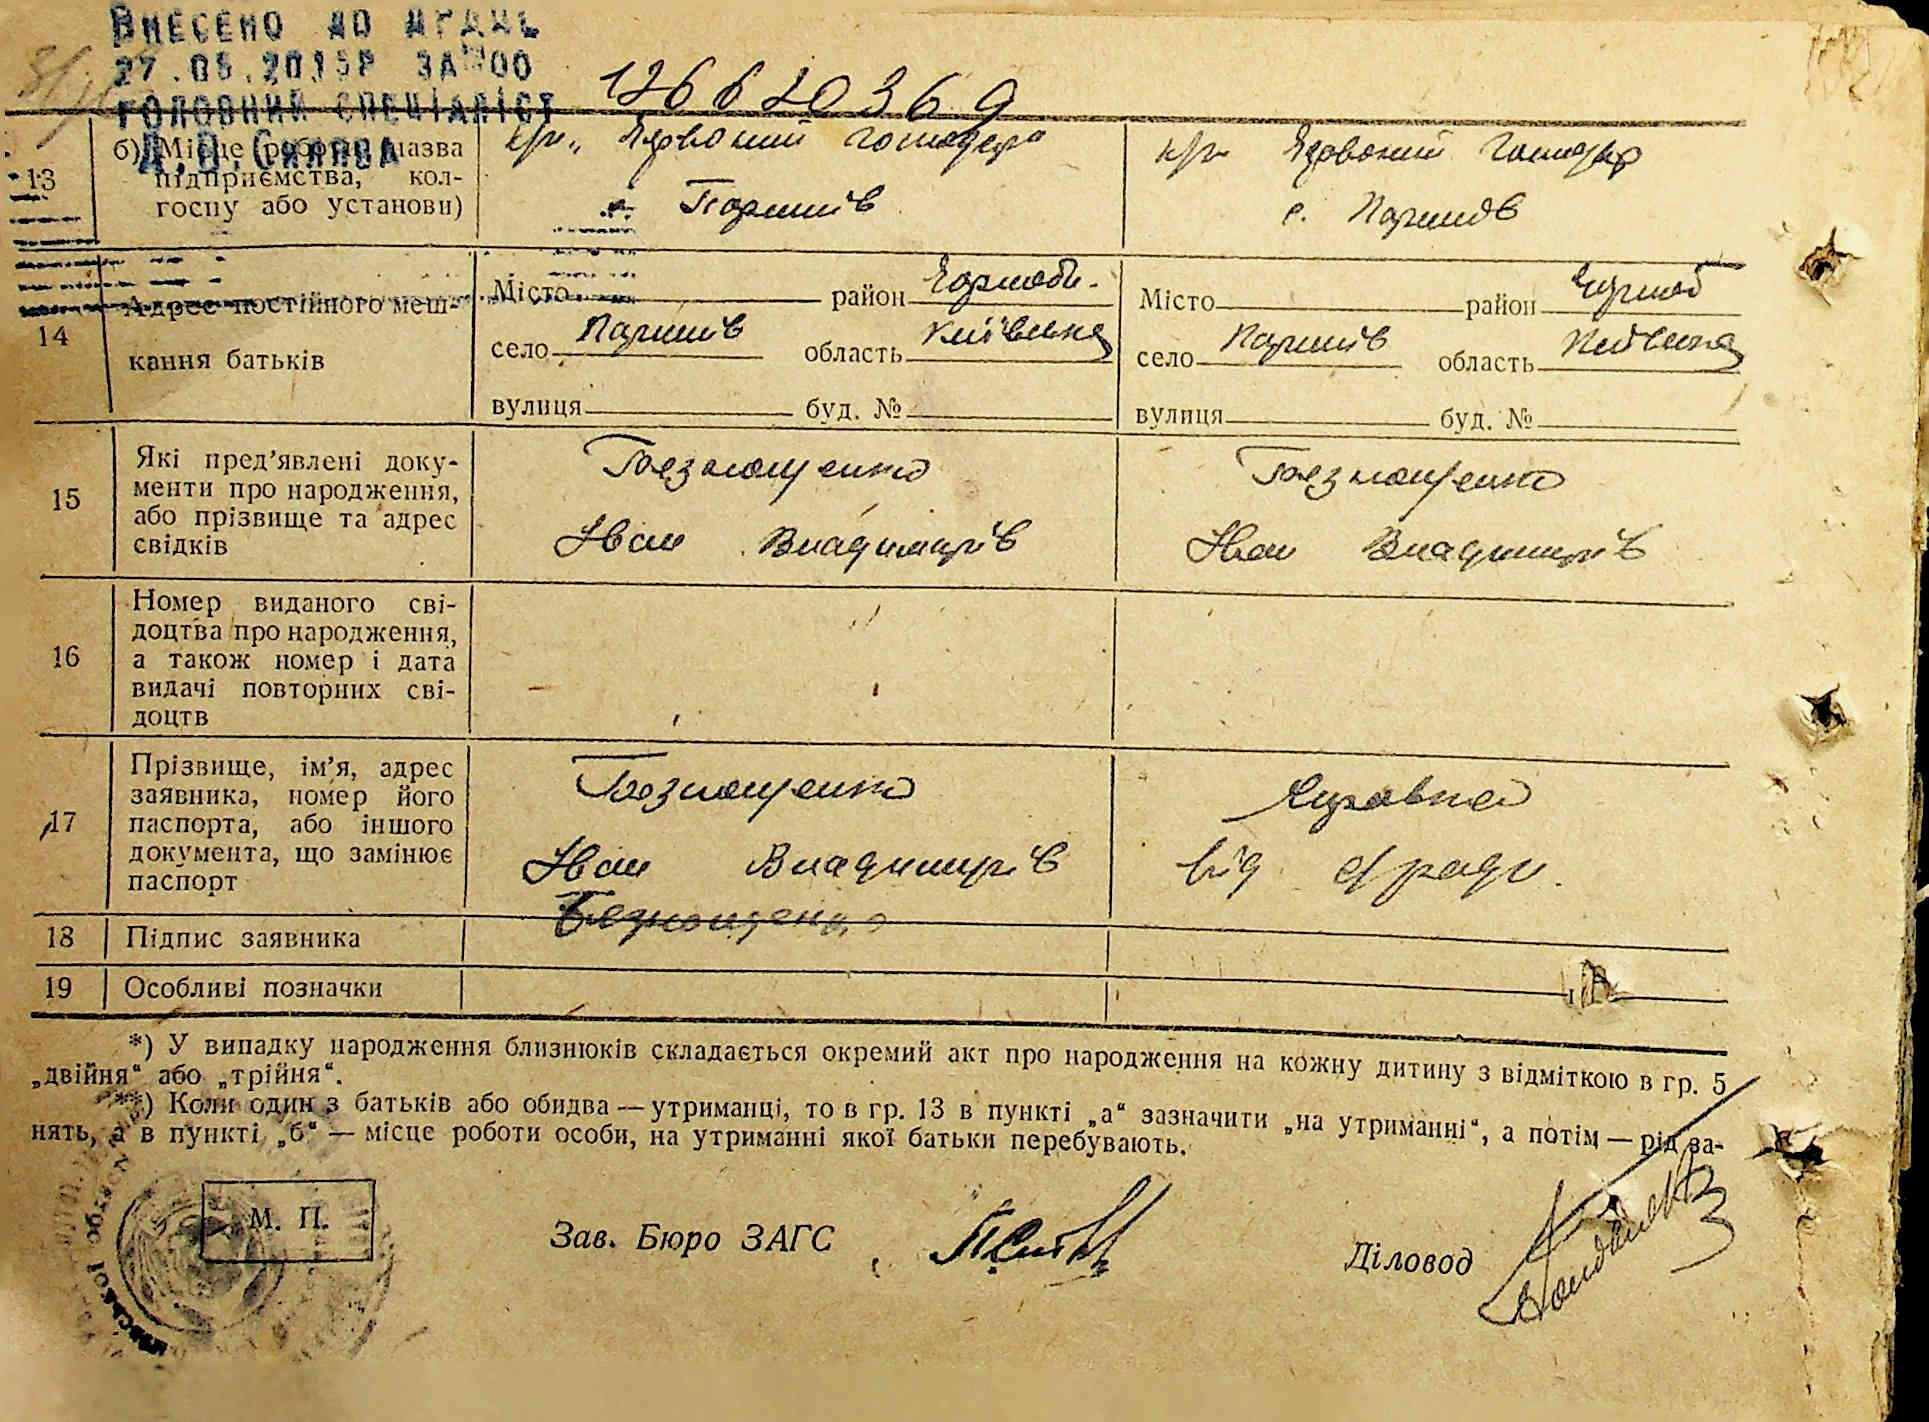 ВНЕСЕНО ДО ДРАЦС
27.05.2015Р ЗА №00
126620369
ГОЛОВНИЙ СПЕЦІАЛІСТ
13
б) Місце роботи (назва підприємства, кол-
госпу або установи)
с. Паришів
с. Паришів
14
Адрес постійного меш-
кання батьків
Місто район Чорноб.
село Паришів область Київська
вулиця буд. №
Місто район Чорноб
село Паришів область Київська
вулиця буд. №
15
Які пред’явлені доку-
менти про народження,
або прізвище та адрес
свідків
Безнощенко
Іван Владимирів
Безнощенко
Іван Владимирів
16
Номер виданого сві-
доцтва про народження,
а також номер і дата
видачі повторних сві-
доцтв
17
Прізвище, ім’я, адрес
заявника, номер його
паспорта, або іншого
документа, що замінює
паспорт
Безнощенко
Іван Владимирів
Справка
від с/ради.
18
Підпис заявника
Безнощенко
19
Особливі позначки
*) У випадку народження близнюків складається окремий акт про народження на кожну дитину з відміткою в гр. 5
„двійня“ або „трійня“.
**) Коли один з батьків або обидва — утриманці, то в гр. 13 в пункті „а“ зазначити „на утриманні“, а потім — рід за-
нять, а в пункті „б“ — місце роботи особи, на утриманні якої батьки перебувають.
М. П.
Зав. Бюро ЗАГС
Діловод